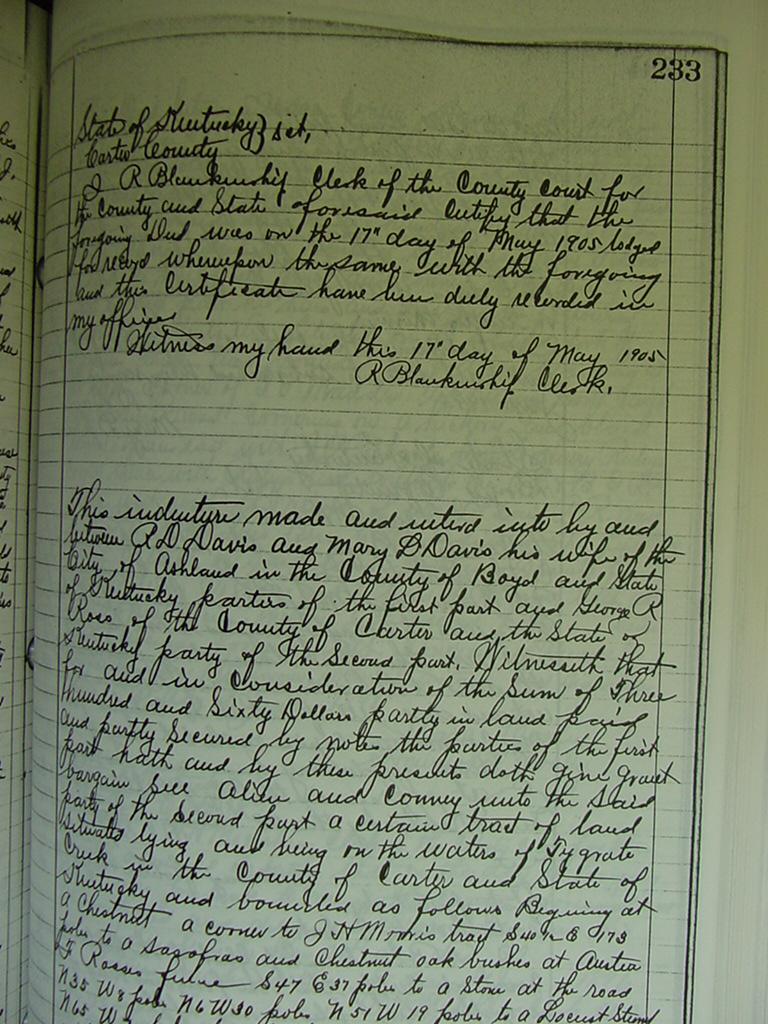 233
State of Kentucky } sct,
Carter County
I R Blankenship Clerk of the County Court for
the County and State aforesaid Certify that the
foregoing Deed was on the 17" day of May 1905 lodged
for record whereupon the same with the foregoing
and this Certificate have been duly recorded in
my office
Witness my hand this 17" day of May 1905
R Blankenship Clerk.
This indenture made and enterd into by and
between R D Davis and Mary D Davis his wife of the
City of Ashland in the County of Boyd and State
of Kentucky parties of the first part and George R
Ross of the County of Carter and the State of
Kentucky party of the Second part. Witnesseth that
for and in Consideration of the Sum of Three
hundred and Sixty Dollars partly in hand paid
and partly Secured by notes the parties of the first
part hath and by these presents doth give grant
bargain sell alien and Convey unto the said
party of the Second part a certain tract of land
situated lying and being on the waters of Tygrate
Creek in the County of Carter and State of
Kentucky and bounded as follows Begining at
a Chestnut a corner to J H Morris tract S40½ E 173
poles to a sasafras and Chestnut oak bushes at Austin
F Rosses fence S47 E 37 poles to a Stone at the road
N35 W 8 poles N6 W30 poles N51 W 19 poles to a Locust Stump
N65 W